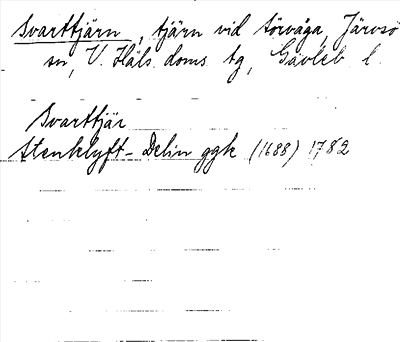 Svarttjärn, tjärn vid Törvåga, Järvsö
sn, V. Häls. doms. tg, Gävleb. l.
Svarttjär
Stenklyft - Delin ggk (1688) 1782